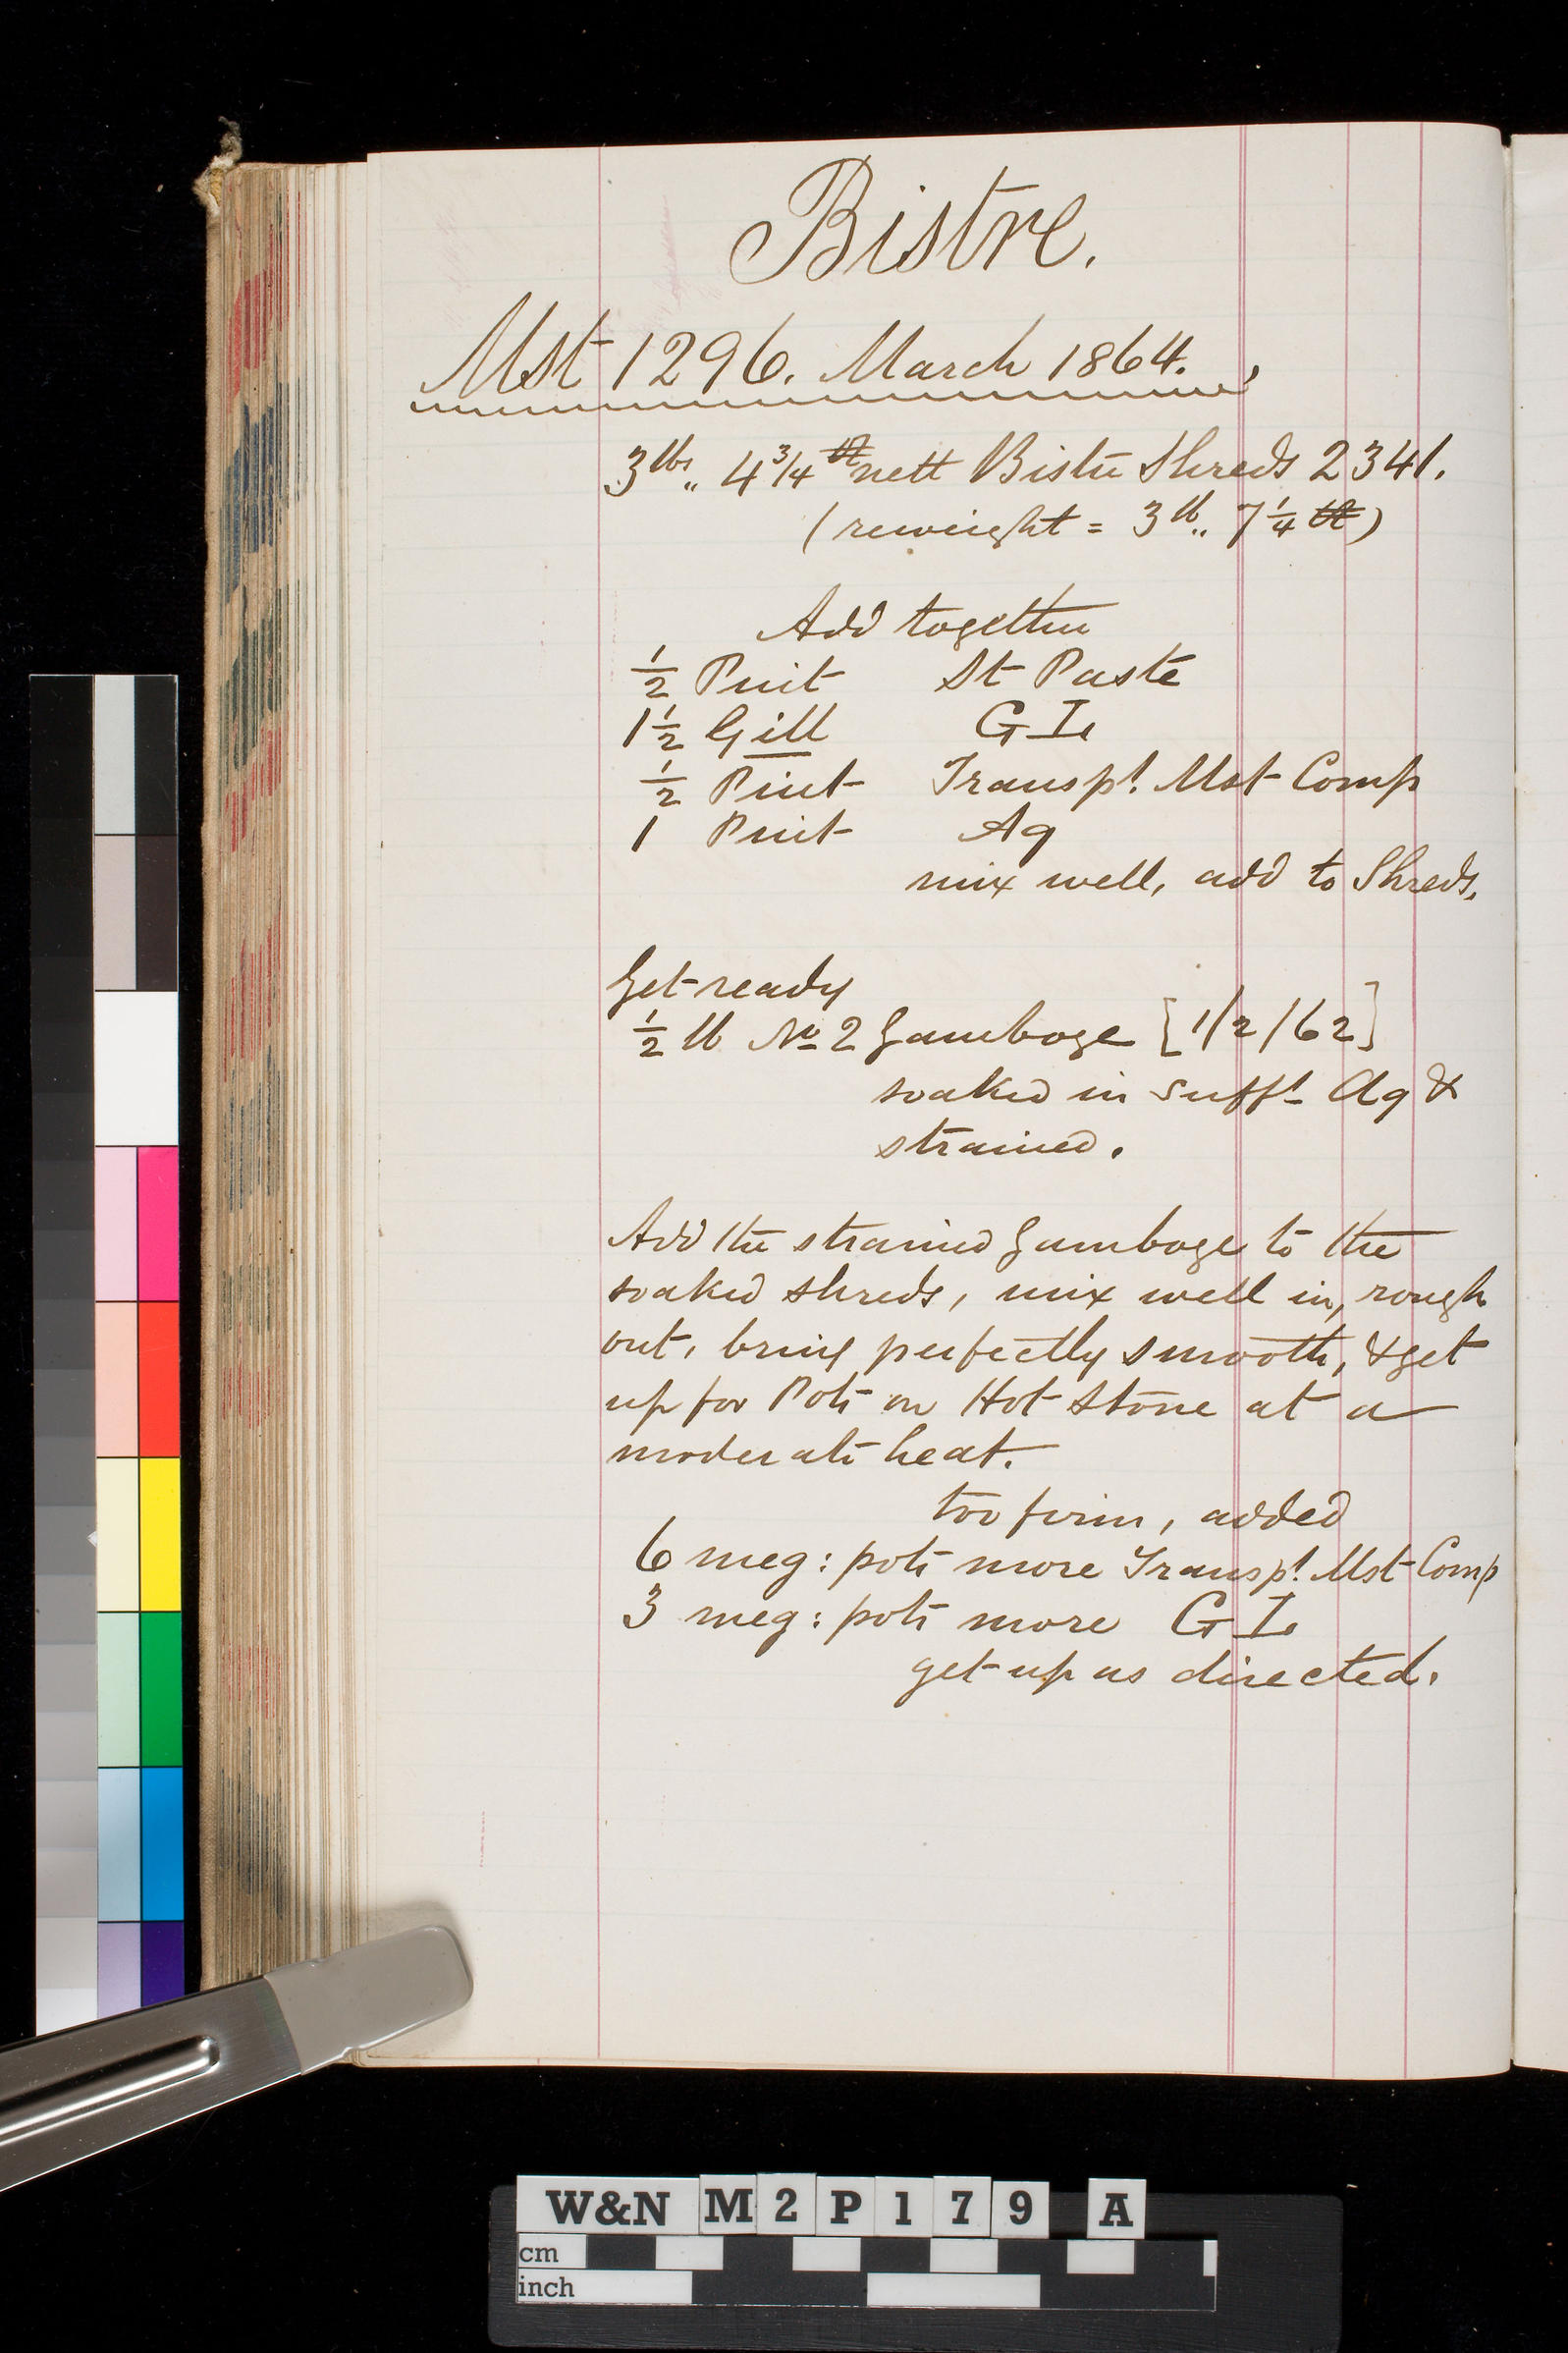 Bistre.
Mst 1296. March 1864.
3 lbs,, 4 3/4 nett Bistre Shreds 2341.
(reweight = 3 lb,, 7 1/4)
Add together
1/2 Pint St Paste
1 1/2 Gill G I.
1/2 Pint Transpt. Mst Comp
1 Pint Aq
mix well, add to Shreds.
Get ready
1/2 lb No 2 Gamboge [1/2/62]
soaked in sufft Aq &
strained.
Add the strained Gamboge to the
soaked shreds, mix well in, rough
out, bring perfectly smooth, & get
up for Pots on Hot Stone at a
moderate heat.
too firm, added
6 meg: pots more Transpt. Mst Comp
3 meg: pots more G I.
get up as directed.
W&N M2P179 A
cm
inch